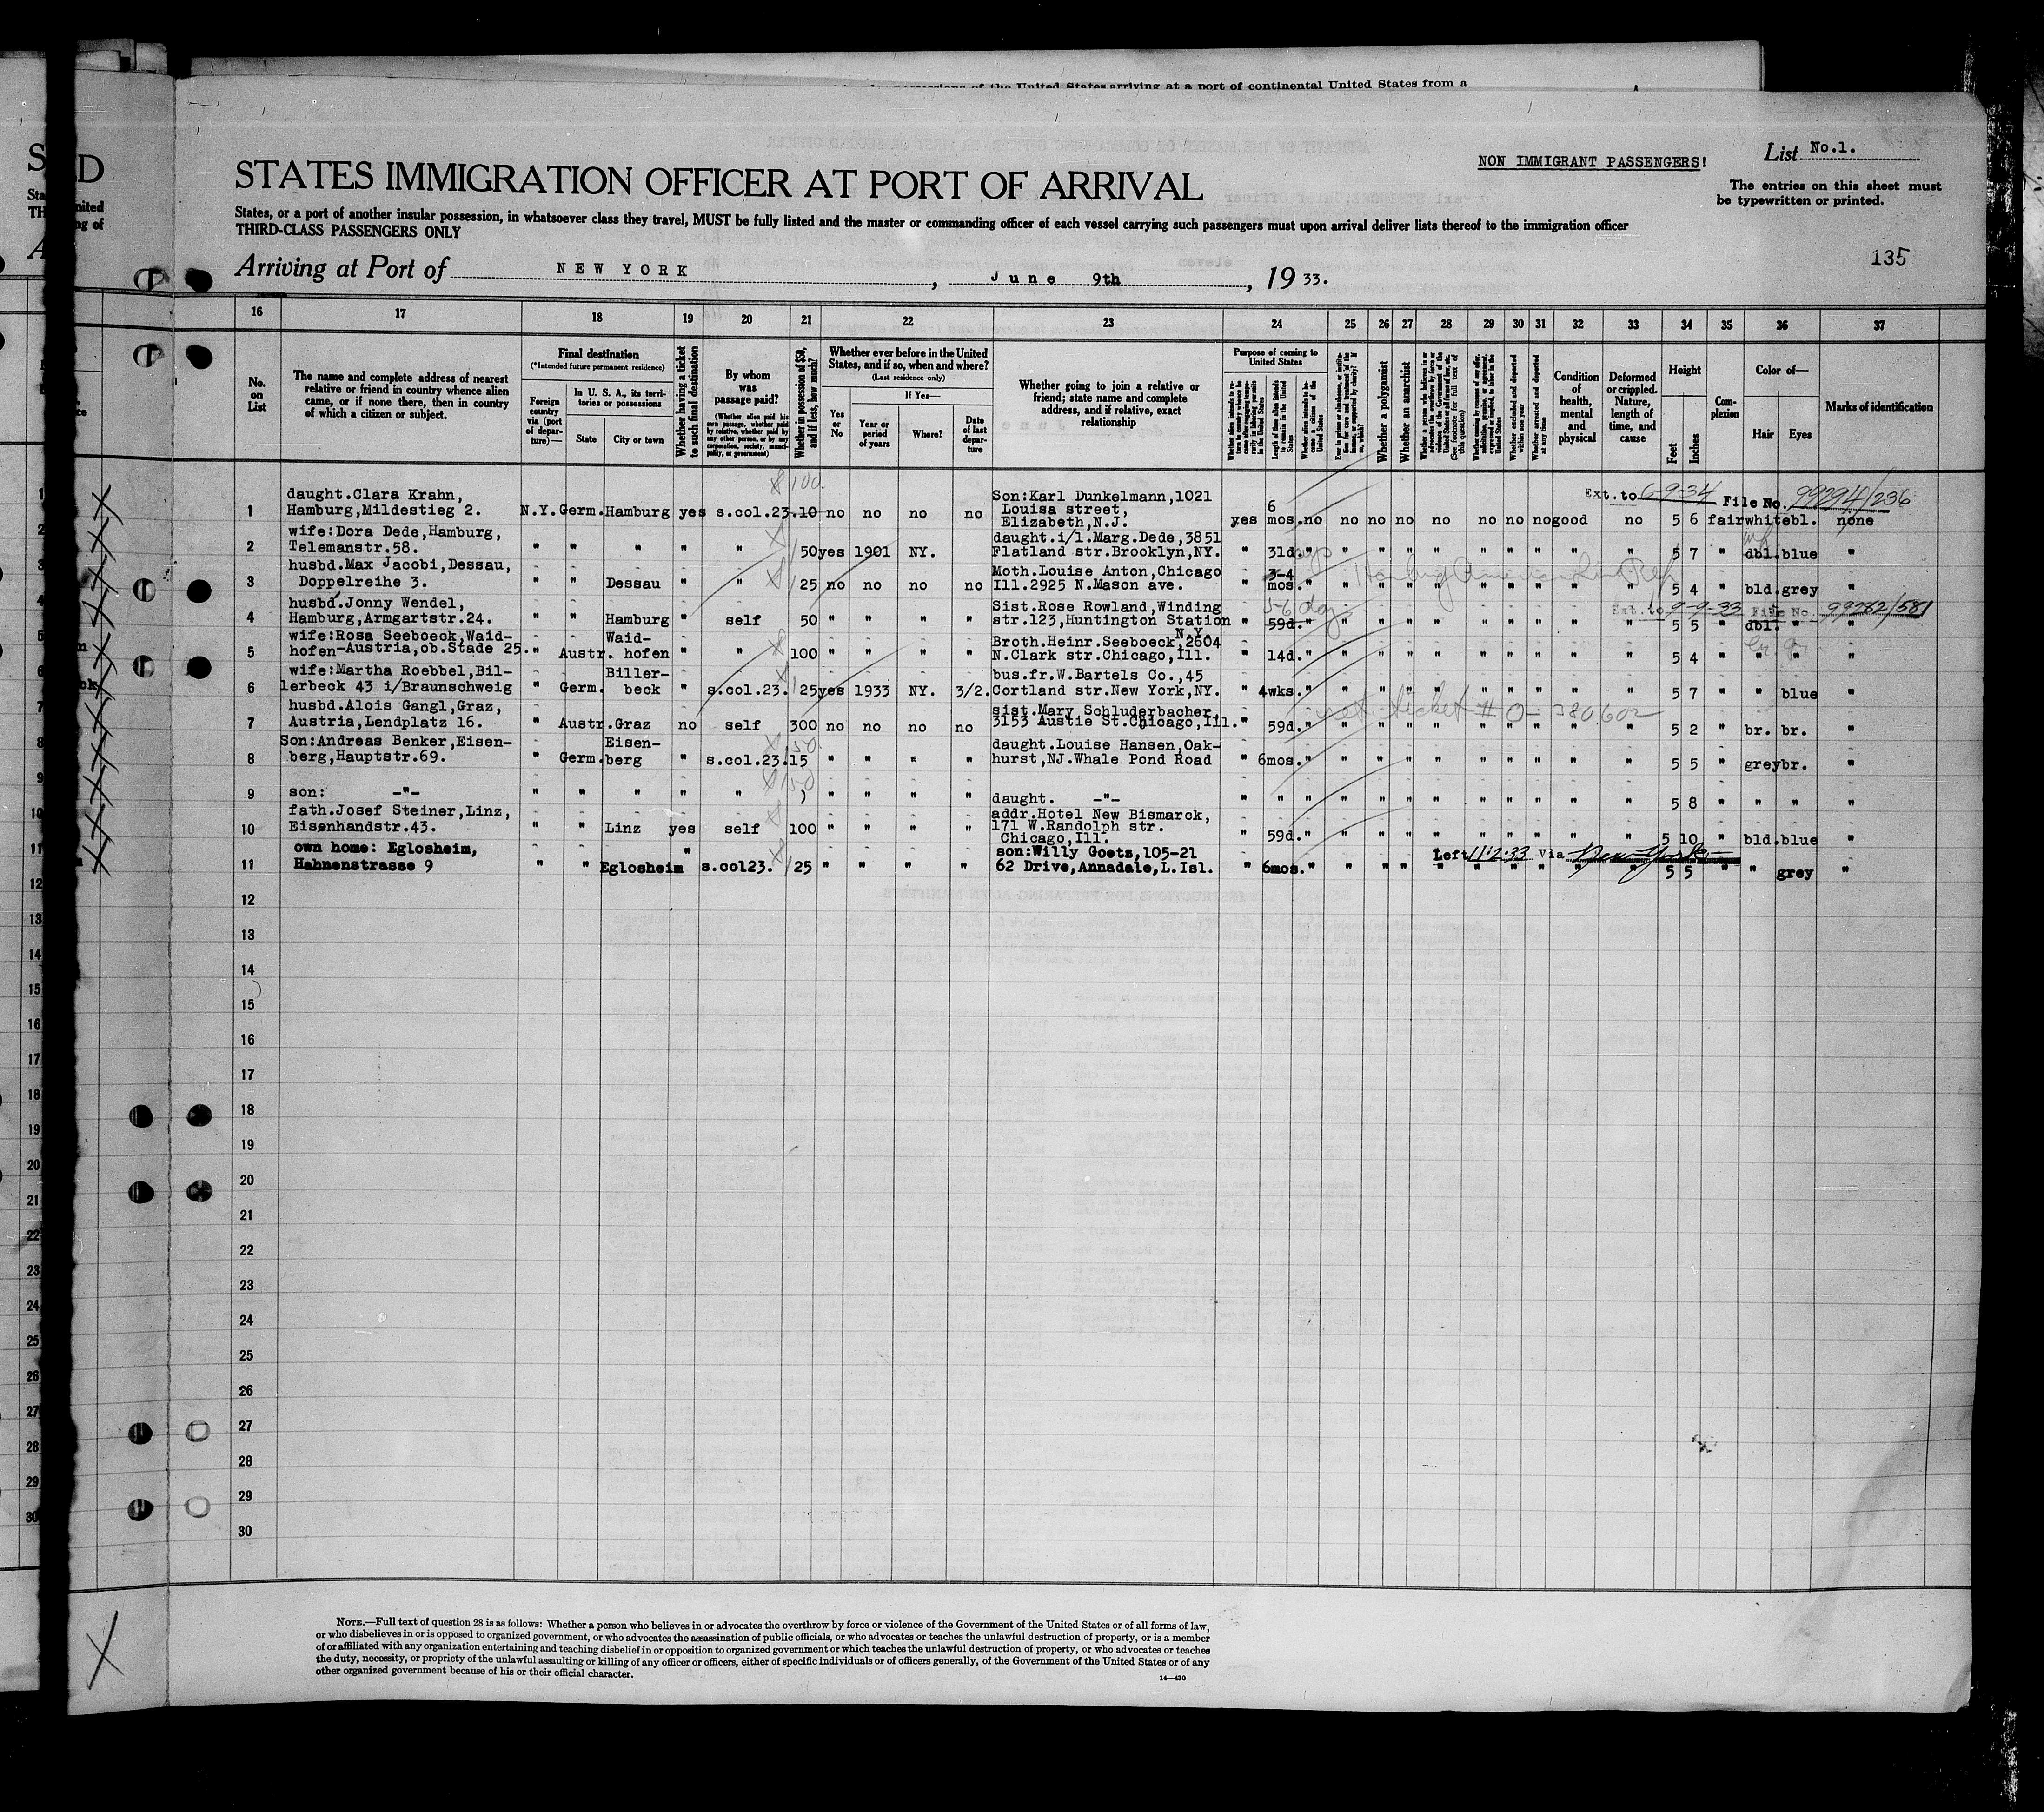 sessions of the United States arriving at a port of continental United States from a
List No.1.
NON IMMIGRANT PASSENGERS!
STATES IMMIGRATION OFFICER AT PORT OF ARRIVAL
The entries on this sheet must
be typewritten or printed.
States, or a port of another insular possession, in whatsoever class they travel, MUST be fully listed and the master or commanding officer of each vessel carrying such passengers must upon arrival deliver lists thereof to the immigration officer
THIRD-CLASS PASSENGERS ONLY
135
Arriving at Port of NEW YORK, June 9th, 1933.
16 17 18 19 20 21 22 23 24 25 26 27 28 29 30 31 32 33 34 35 36 37
No. on List
The name and complete address of nearest relative or friend in country whence alien came, or if none there, then in country of which a citizen or subject.
Final destination
(*Intended future permanent residence)
Foreign country via (port of departure)—
In U. S. A., its territories or possessions
State
City or town
Whether having a ticket to such final destination
By whom was passage paid?
(Whether alien paid his own passage, whether paid by relative, whether paid by any other person, or by any corporation, society, municipality, or government)
Whether in possession of $50, and if less, how much?
Whether ever before in the United States, and if so, when and where?
(Last residence only)
Yes or No
If Yes—
Year or period of years
Where?
Date of last departure
Whether going to join a relative or friend; state name and complete address, and if relative, exact relationship
Purpose of coming to United States
Length of time alien intends to remain in the United States
Whether alien intends to become a citizen of the United States
Whether a polygamist
Whether an anarchist
Whether excluded and deported within one year
Whether arrested and deported at any time
Condition of health, mental and physical
Deformed or crippled. Nature, length of time, and cause
Height
Feet
Inches
Complexion
Color of—
Hair
Eyes
Marks of identification
100.
Ext. to 6-9-34 File No. 99294/236
1 daught.Clara Krahn, Hamburg,Mildestieg 2. N.Y. Germ. Hamburg yes s.col.23. 10 no no no no Son:Karl Dunkelmann,1021 Louisa street, Elizabeth,N.J. yes 6 mos. no no no no no no no no good no 5 6 fair white bl. none
2 wife:Dora Dede,Hamburg, Telemanstr.58. " " " " " 50 yes 1901 NY. daught.i/l.Marg.Dede,3851 Flatland str.Brooklyn,NY. " 31d. " " " " " " " " " " 5 7 " dbl. blue "
3 husbd.Max Jacobi,Dessau, Doppelreihe 3. " " Dessau " " 25 no no no no Moth.Louise Anton,Chicago Ill.2925 N.Mason ave. " 3-4 mos. " " " " " " " " " " 5 4 " bld. grey "
Ext. to 9-9-33 File No. 99282/581
4 husbd.Jonny Wendel, Hamburg,Armgartstr.24. " " Hamburg " self 50 " " " " Sist.Rose Rowland,Winding str.123,Huntington Station N.Y. " 59d. " " " " " " " " " " 5 5 " dbl. " "
5 wife:Rosa Seeboeck,Waid- hofen-Austria,ob.Stade 25. " Austr. Waid- hofen " " 100 " " " " Broth.Heinr.Seeboeck,2604 N.Clark str.Chicago,Ill. " 14d. " " " " " " " " " " 5 4 " " " "
6 wife:Martha Roebbel,Bil- lerbeck 43 i/Braunschweig " Germ. Biller- beck " s.col.23. 25 yes 1933 NY. 3/2. bus.fr.W.Bartels Co.,45 Cortland str.New York,NY. " 4wks. " " " " " " " " " " 5 7 " " blue "
ret. ticket # 0-380602
7 husbd.Alois Gangl,Graz, Austria,Lendplatz 16. " Austr. Graz no self 300 no no no no sist.Mary Schluderbacher 3153 Austie St.Chicago,Ill. " 59d. " " " " " " " " " " 5 2 " br. br. "
8 Son:Andreas Benker,Eisen- berg,Hauptstr.69. " Germ. Eisen- berg " s.col.23. 15 " " " " daught.Louise Hansen,Oak- hurst,NJ.Whale Pond Road " 6mos. " " " " " " " " " " 5 5 " grey br. "
9 son: -"- " " " " " " " " " daught. -"- " " " " " " " " " " " " 5 8 " " " "
10 fath.Josef Steiner,Linz, Eisenhandstr.43. " " Linz yes self 100 " " " " addr.Hotel New Bismarck, 171 W.Randolph str. Chicago,Ill. " 59d. " " " " " " " " " " 5 10 " bld. blue "
Left 11-2-33 Via New York
11 own home: Eglosheim, Hahnenstrasse 9 " " Eglosheim " s.col23. 25 " " " " son:Willy Goetz,105-21 62 Drive,Annadale,L.Isl. " 6mos. " " " " " " " " " " 5 5 " " grey "
12
13
14
15
16
17
18
19
20
21
22
23
24
25
26
27
28
29
30
NOTE.—Full text of question 28 is as follows: Whether a person who believes in or advocates the overthrow by force or violence of the Government of the United States or of all forms of law,
or who disbelieves in or is opposed to organized government, or who advocates the assassination of public officials, or who advocates or teaches the unlawful destruction of property, or is a member
of or affiliated with any organization entertaining and teaching disbelief in or opposition to organized government or which teaches the unlawful destruction of property, or who advocates or teaches
the duty, necessity, or propriety of the unlawful assaulting or killing of any officer or officers, either of specific individuals or of officers generally, of the Government of the United States or of any
other organized government because of his or their official character.
14—430